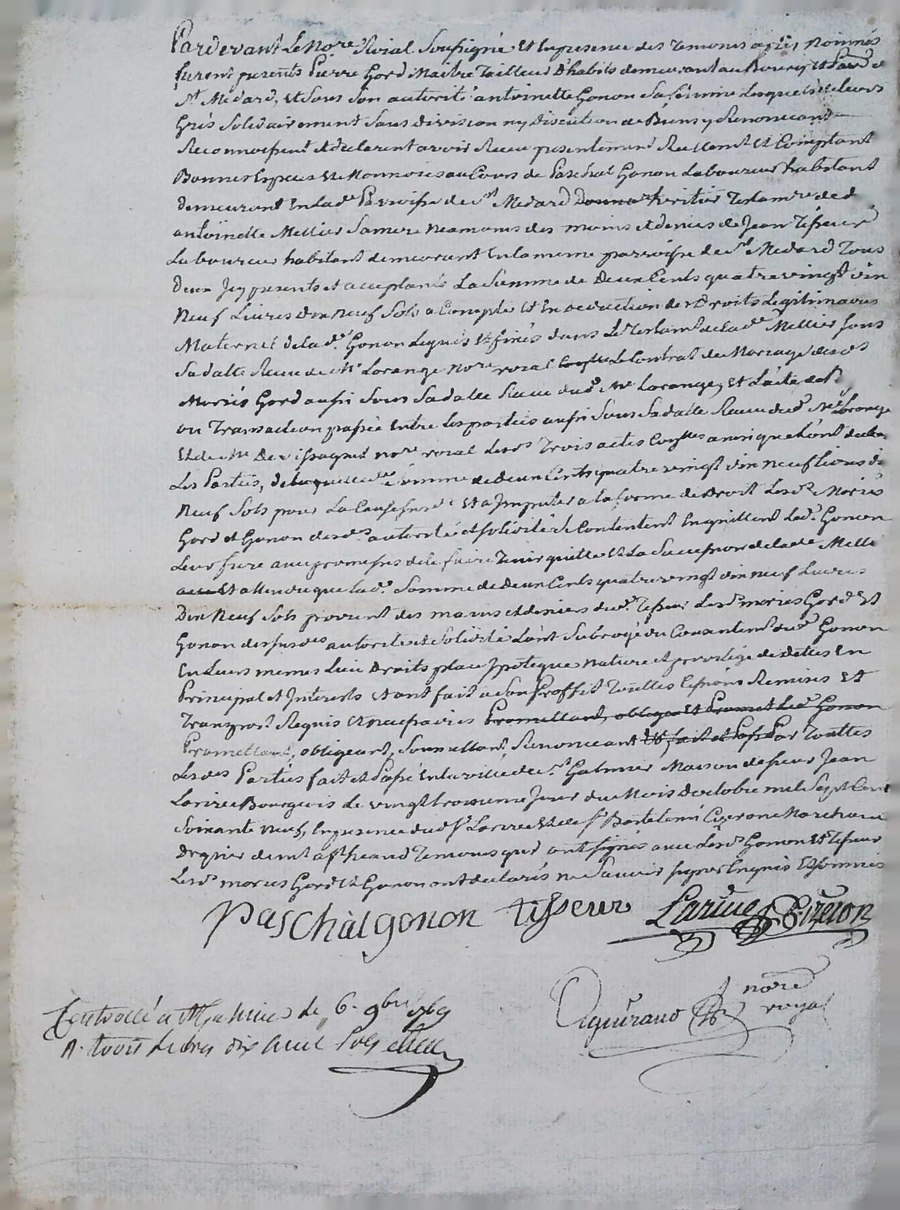 Pardevant Le Nore Roial Soussigné et En presence des temoins après nommés
furent presents Pierre Gord Maitre Tailleur D'habits demeurant au Bourg et Parr. de
St. Medard, et Sous Son autorité antoinette Gonon Sa femme Lesquels de leurs
Grés Solidairement Sans division ny discution de Biens y Renonceant
Reconnoissent et declarent avoir Receu presentement Reellemt. et Comptant
Bonnes Especes et Monnoies au Cours de Paschal Gonon Laboureur habitant
demeurant En lade. Parroisse de St. Medard heritier Testamre. de d.
antoinette Mellier Sa mere neamoins des mains et deniers de Jean Tisseur
Laboureur habitant demeurant En la meme parroisse de St. Medard Tous
deux Icy presents et acceptants La Somme de Deux Cents quatre vingt dix
Neuf Livres Dix Neuf Sols a Compte et En deduction des Droits Legitimaires
Maternels de lade. Gonon Leguės et fixés dans Le Testamt. de lade. Mellier Sous
Sa datte Receu de Me. Lorange nore. roial Le Contrat de Mariage desds.
Mariés Gord aussi Sous Sa datte Receu dud. Me. Lorange, et L'acte
ou Transaction passée Entre les parties aussi Sous Sa datte Receu dud. Me. Lorange
Et de Me. nore. roial Lesds. Trois actes ainsi que L'ont declaré
Les Parties, de laquelle de. Somme de deux Cents quatre vingt dix neuf Livres dix
Neuf Sols pour La Cause Susde. Et a Imputer a la forme de Droit Lesds. Mariés
Gord et Gonon desds. autorité et Solidité Se Contentent En quittent Led. Gonon
Leur frere avec promesses de le faire Tenir quitte et La Succession de lade. Mellier
et attendu que lade. Somme de Deux Cents quatre vingt dix neuf Livres
Dix Neuf Sols provient des mains et deniers dud. Tisseur Lesds. mariés Gord et
Gonon desds. autorité et Solidité L'ont Subrogé du Consentemt. dud. Gonon
En Leurs memes Lieu Droits place Ipoteque Nature et privilege de dettes En
Principal et Interets et ont fait a Son Proffit Toutes Cessions Remises et
Transport Requis et necessaires Promettant, obligeant Et Promet Led. Gonon
Promettant, obligeant, Soumettant, Renonceant Et fait et Passé Par Touttes
Lesdes. Parties fait et Passé En la ville de St. Galmier Maison de sieur Jean
Larive Bourgeois Le vingt troisieme Jour du Mois D'octobre mil Sept Cent
Soixante Neuf, En presence dud. Sr. Larive et de Sr. Bartelemi Marchand
demt. aud. Temoins qui ont Signés avec Lesds. Gonon et Tisseur
Lesds. mariés Gord et Gonon ont declarés ne Sçavoir Signer Enquis et Sommés
PasChàl gonon tisseur Larive
nore royal
Controllé a St. Galmier le 6. 9bre 1769